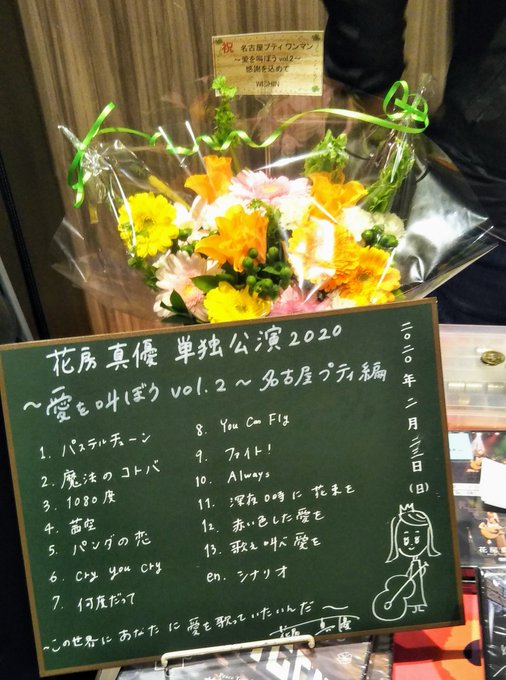 祝 名古屋プティ ワンマン
～愛を叫ぼう vol.2～
感謝を込めて
WISHIN
花房 真優 単独公演2020
～愛を叫ぼう vol.2～名古屋プティ編
1. パステルチューン
2. 魔法のコトバ
3. 1080度
4. 茜空
5. パンダの恋
6. cry you cry
7. 何度だって
8. You Can Fly
9. ファイト!
10. Always
11. 深夜0時に花束を
12. 赤い色した愛を
13. 歌え叫べ愛を
en. シナリオ
二〇二〇年二月二三日(日)
～この世界にあなたに愛を歌っていたいんだ～
花房 真優